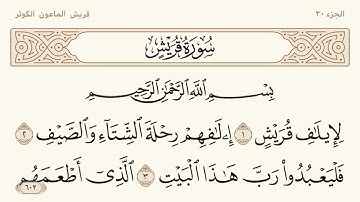 الجزء ٣٠
قريش الماعون الكوثر
سُورَةُ قُرَيْشٍ
بِسْمِ ٱللَّهِ ٱلرَّحْمَٰنِ ٱلرَّحِيمِ
لِإِيلَٰفِ قُرَيْشٍ ١ إِۦلَٰفِهِمْ رِحْلَةَ ٱلشِّتَآءِ وَٱلصَّيْفِ ٢
فَلْيَعْبُدُوا۟ رَبَّ هَٰذَا ٱلْبَيْتِ ٣ ٱلَّذِىٓ أَطْعَمَهُم
٦٠٢